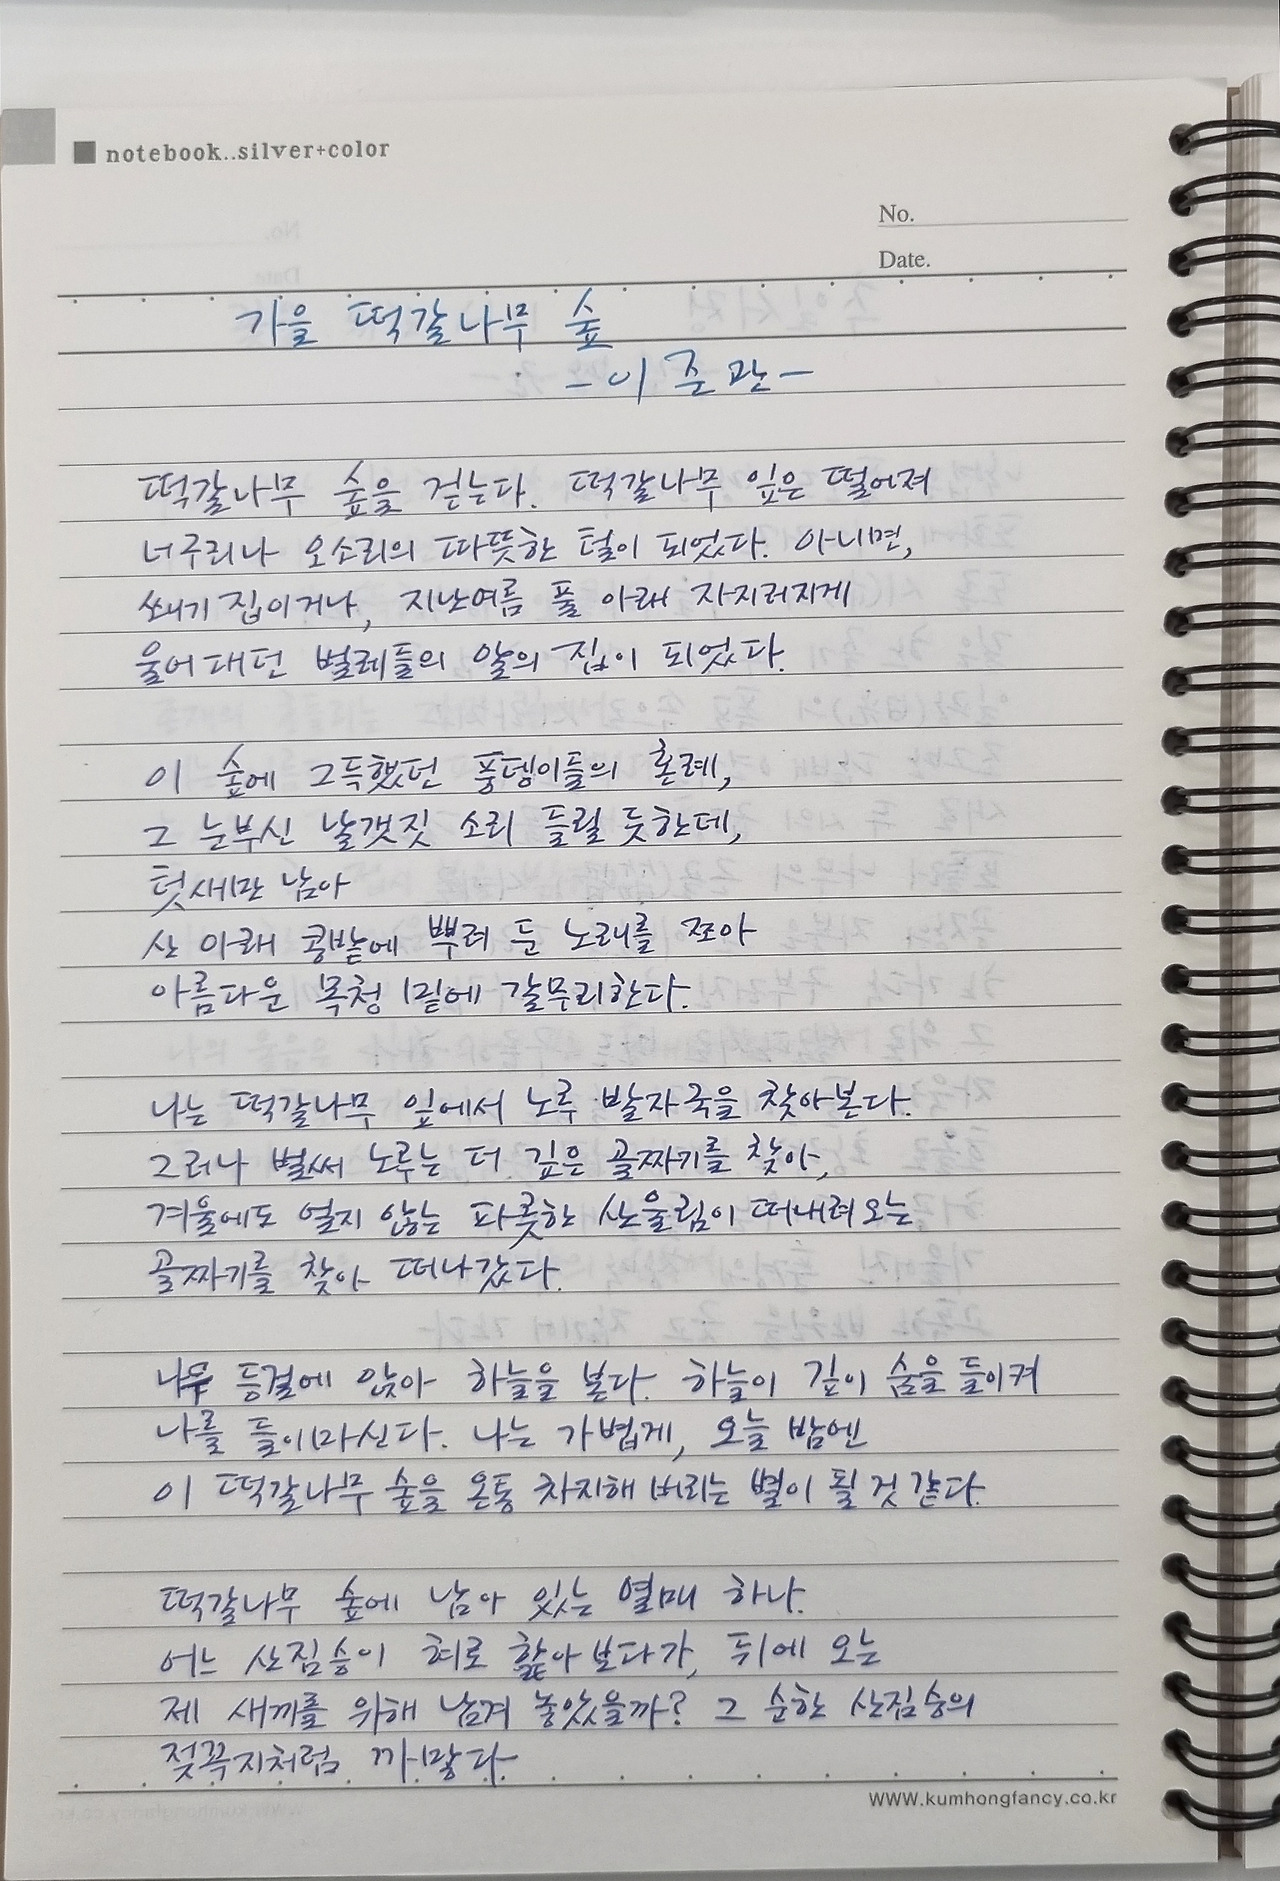 notebook..silver+color
No.
Date.
가을 떡갈나무 숲
-이준관-
떡갈나무 숲을 걷는다. 떡갈나무 잎은 떨어져
너구리나 오소리의 따뜻한 털이 되었다. 아니면,
쐐기 집이거나, 지난여름 풀 아래 자지러지게
울어대던 벌레들의 알의 집이 되었다.
이 숲에 그득했던 풍뎅이들의 혼례,
그 눈부신 날갯짓 소리 들릴 듯한데,
텃새만 남아
산 아래 콩밭에 뿌려 둔 노래를 쪼아
아름다운 목청 밑에 갈무리한다.
나는 떡갈나무 잎에서 노루 발자국을 찾아본다.
그러나 벌써 노루는 더 깊은 골짜기를 찾아,
겨울에도 얼지 않는 파릇한 산울림이 떠내려오는
골짜기를 찾아 떠나갔다.
나무 등걸에 앉아 하늘을 본다. 하늘이 깊이 숨을 들이켜
나를 들이마신다. 나는 가볍게, 오늘 밤엔
이 떡갈나무 숲을 온통 차지해 버리는 별이 될 것 같다.
떡갈나무 숲에 남아 있는 열매 하나.
어느 산짐승이 혀로 핥아보다가, 뒤에 오는
제 새끼를 위해 남겨 놓았을까? 그 순한 산짐승의
젖꼭지처럼 까맣다.
www.kumhongfancy.co.kr